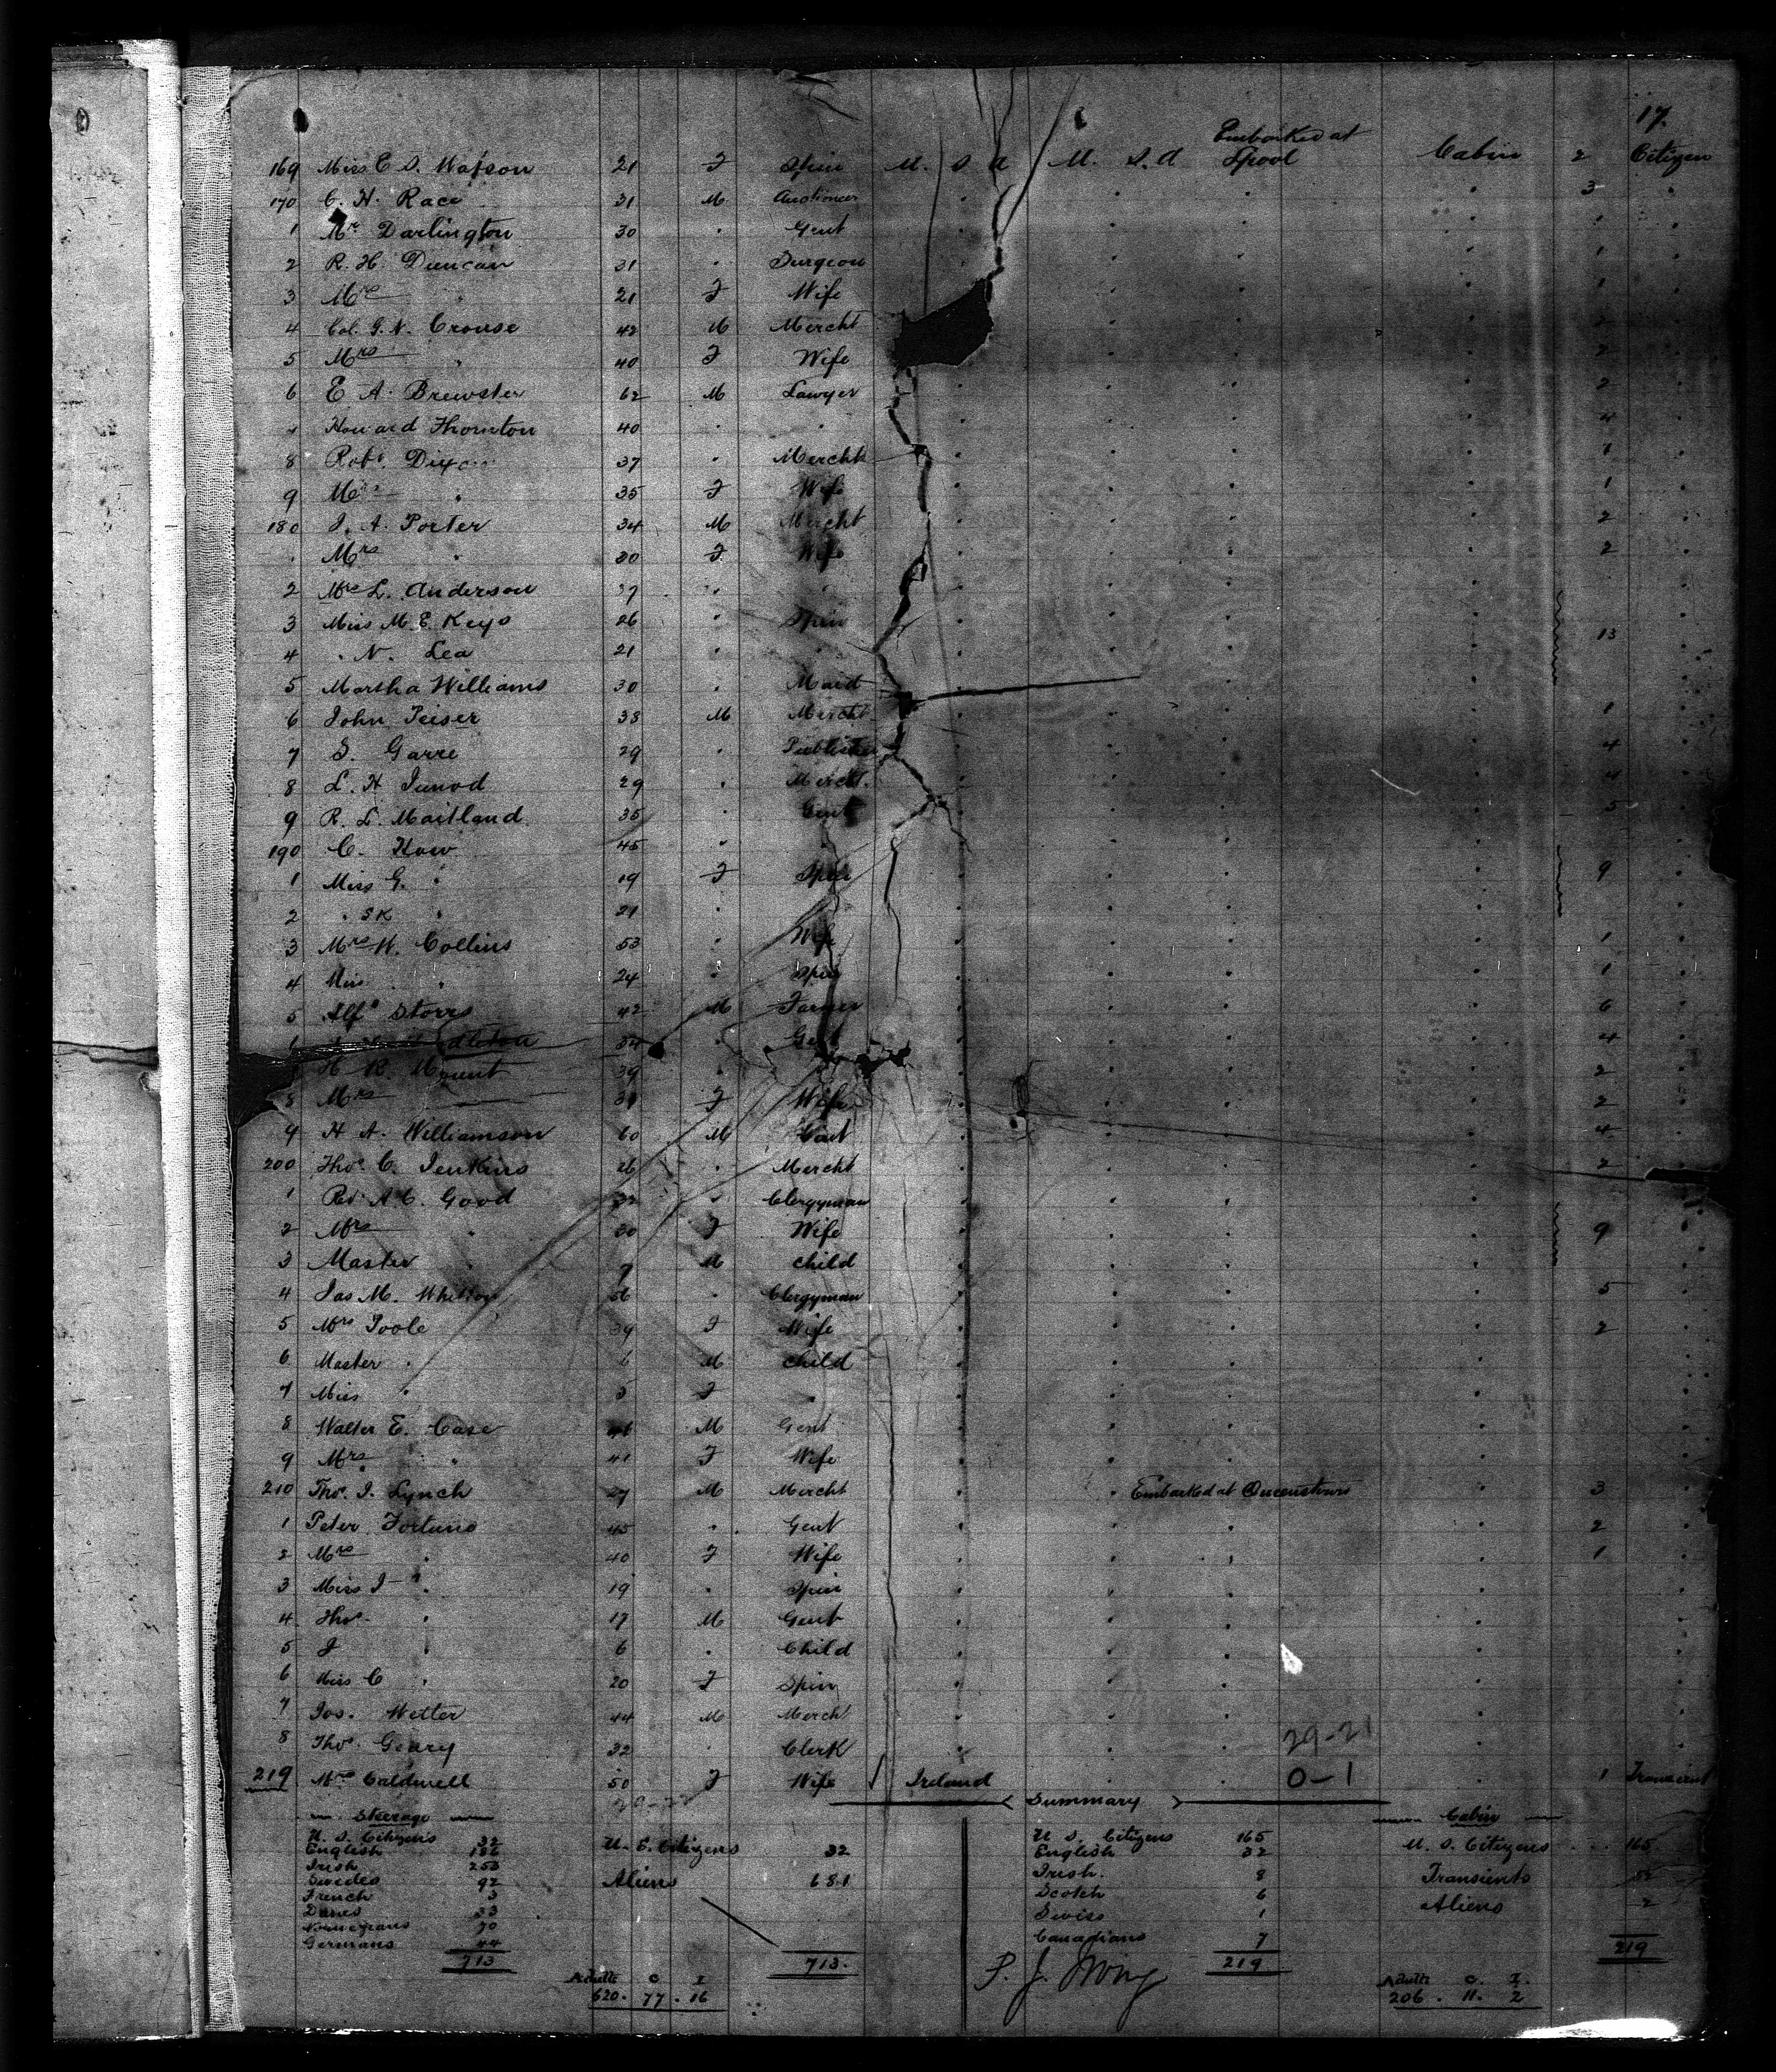 17.
Embarked at
169 Miss E S. Watson 21 F Spin U. S A U. S. A Lpool Cabin 2 Citizen
170 C. H. Race 31 M Auctioneer 3
1 Mr Darlington 30 Gent 1
2 R. H. Duncan 31 Surgeon 1
3 Mrs " 21 F Wife 1
4 Col. G. N. Crouse 42 M Mercht 2
5 Mrs " 40 F Wife 2
6 E A. Brewster 62 M Lawyer 2
Howard Thornton 40 4
8 Robt. Dixon 37 Mercht 1
9 Mrs " 35 F Wife 1
180 J. A. Porter 34 M Mercht 2
Mrs " 30 F Wife 2
2 Mrs L. Anderson
3 Miss M. E. Keys 26 Spin 13
4 " N. Lea 21
5 Martha Williams 30 Maid
6 John Teiser 38 M Mercht 1
7 S. Garre 29 Publisher 4
8 L. H Junod 29 Mercht. 4
9 R. L. Maitland 35 Gent 5
190 C. Haw 45
1 Miss G. " 19 F Spin 9
2 " SK " 21
3 Mrs W. Collins 53 Wife 1
4 Miss " 24 Spin 1
5 Alfd Storrs 42 M Farmer 6
34 Gent 4
H R. Mount 39 2
8 Mrs F Wife 2
9 H A. Williamson 60 M Gent 4
200 Thos. C. Jenkins 26 Mercht 2
1 Rev A. C. Good 32 Clergyman
2 Mrs " 30 F Wife 9
3 Master " 7 M child
4 Jas M. Whiton 56 Clergyman 5
5 Mrs Toole 39 F Wife 2
6 Master " 6 M child
7 Miss " 5 F
8 Walter E. Case 46 M Gent
9 Mrs " 41 F Wife
210 Thos. J. Lynch 27 M Mercht Embarked at Queenstown 3
1 Peter Fortune 45 Gent 2
2 Mrs " 40 F Wife 1
3 Miss J " 19 Spin
4 Thos " 17 M Gent
5 J " 6 Child
6 Miss C " 20 F Spin
7 Jos. Wetter 44 M Mercht
8 Thos. Geary 32 Clerk 29-21
219 Mrs Caldwell 50 F Wife Ireland 0-1 1 Transient
Summary
Steerage
U. S. Citizens 32
English 186
Irish 253
Swedes 92
French 3
Danes 33
Norwegians 70
Germans 44
713
U. S. Citizens 32
Aliens 681
713.
Adults C I
620. 77. 16
U S. Citizens 165
English 32
Irish. 8
Scotch 6
Swiss 1
Canadians 7
219
Cabin
U. S. Citizens 165
Transients 52
Aliens 2
219
Adults C. I.
206. 11. 2